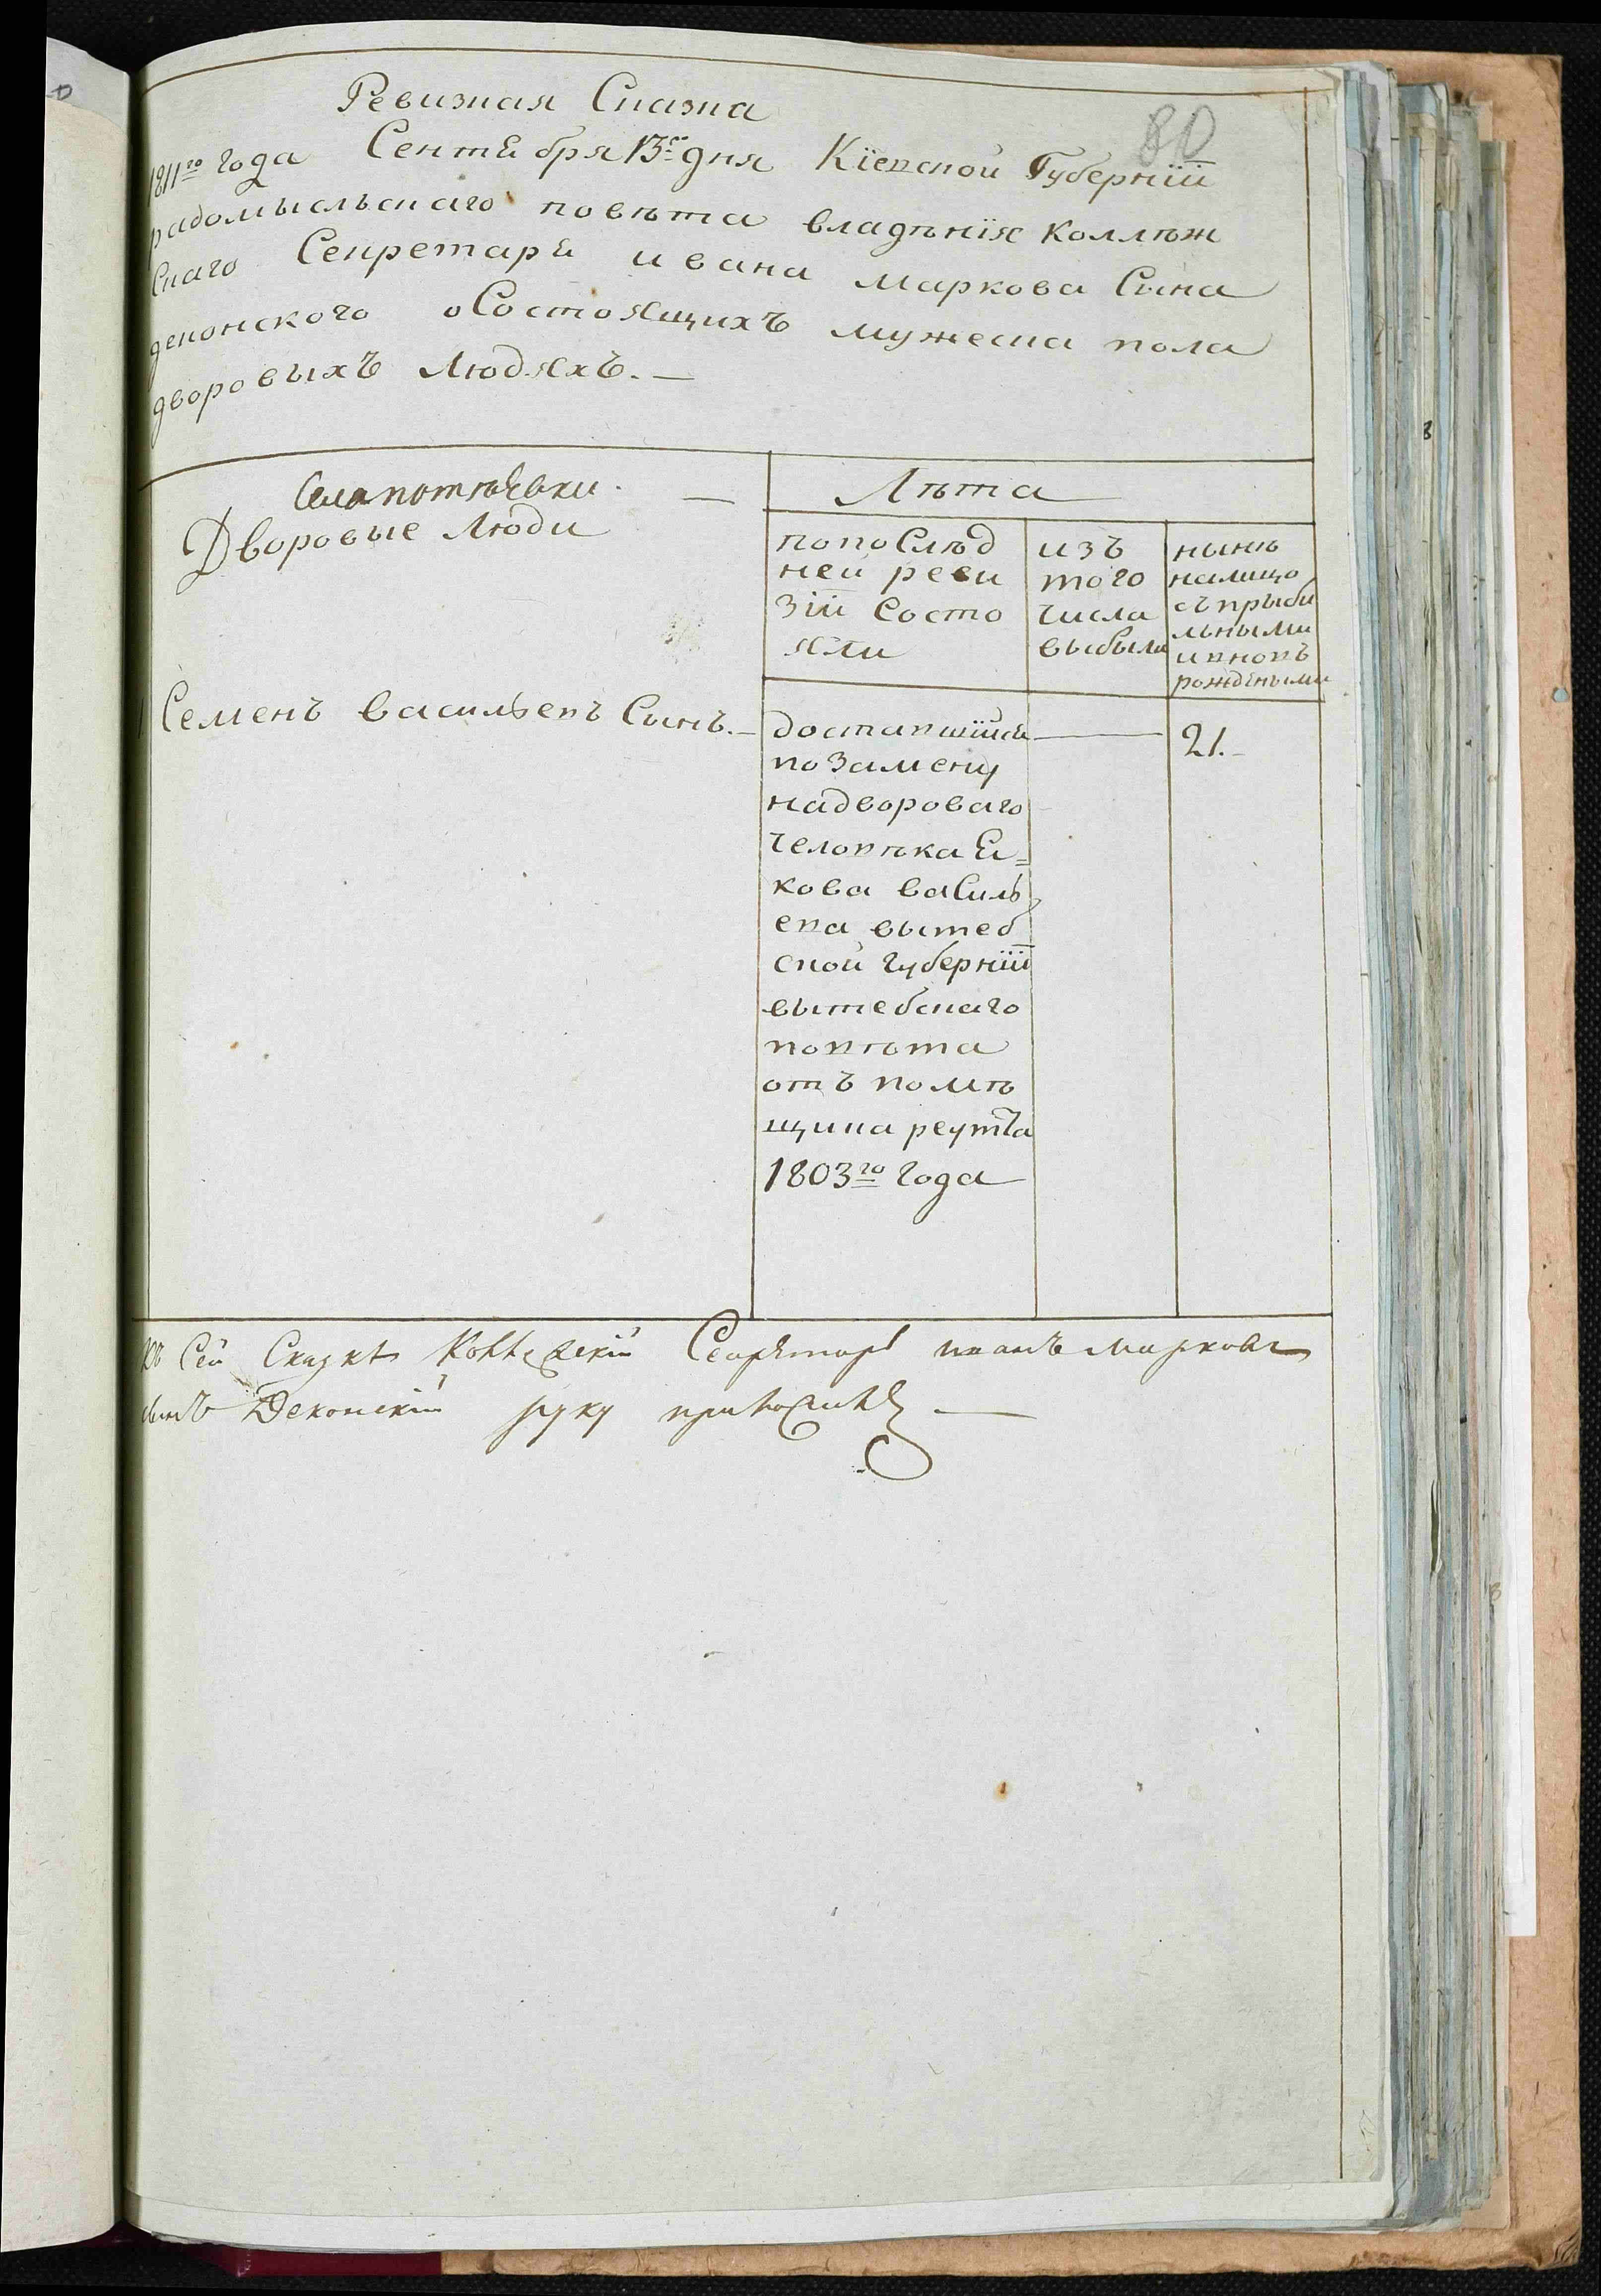 80
Ревизная Сказка
1811го года Сентября 13го дня Кіевской Губерніи
радомысльскаго повѣта владѣнія коллѣж
скаго Секретаря ивана маркова Сына
деконского оСостоящихъ мужеска пола
дворовыхъ людяхъ.
Села
Дворовые люди
Лѣта
попоСлѣд
ней реви
зіи Состо
яли
изъ
того
числа
выбыли
нынѣ
налицо
съ прыбы
льными
ивновъ
рождеными
Семенъ васильевъ Сынъ.
доставшійся
позамену
надвороваго
человѣка Я=
кова василь
ева вытеб
ской губерніи
вытебскаго
повѣта
отъ помѣ
щика реутта
1803го года
21.
Къ Сей Сказкѣ Коллежскій Секретарь иванъ марковъ
сынъ Деконскій руку приложилъ